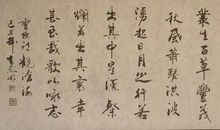 叢生百草豐茂
秋風蕭瑟洪波
湧起日月之行若
出其中星漢燦
爛若出其裏幸
甚至哉歌以詠志
曹操詩觀滄海